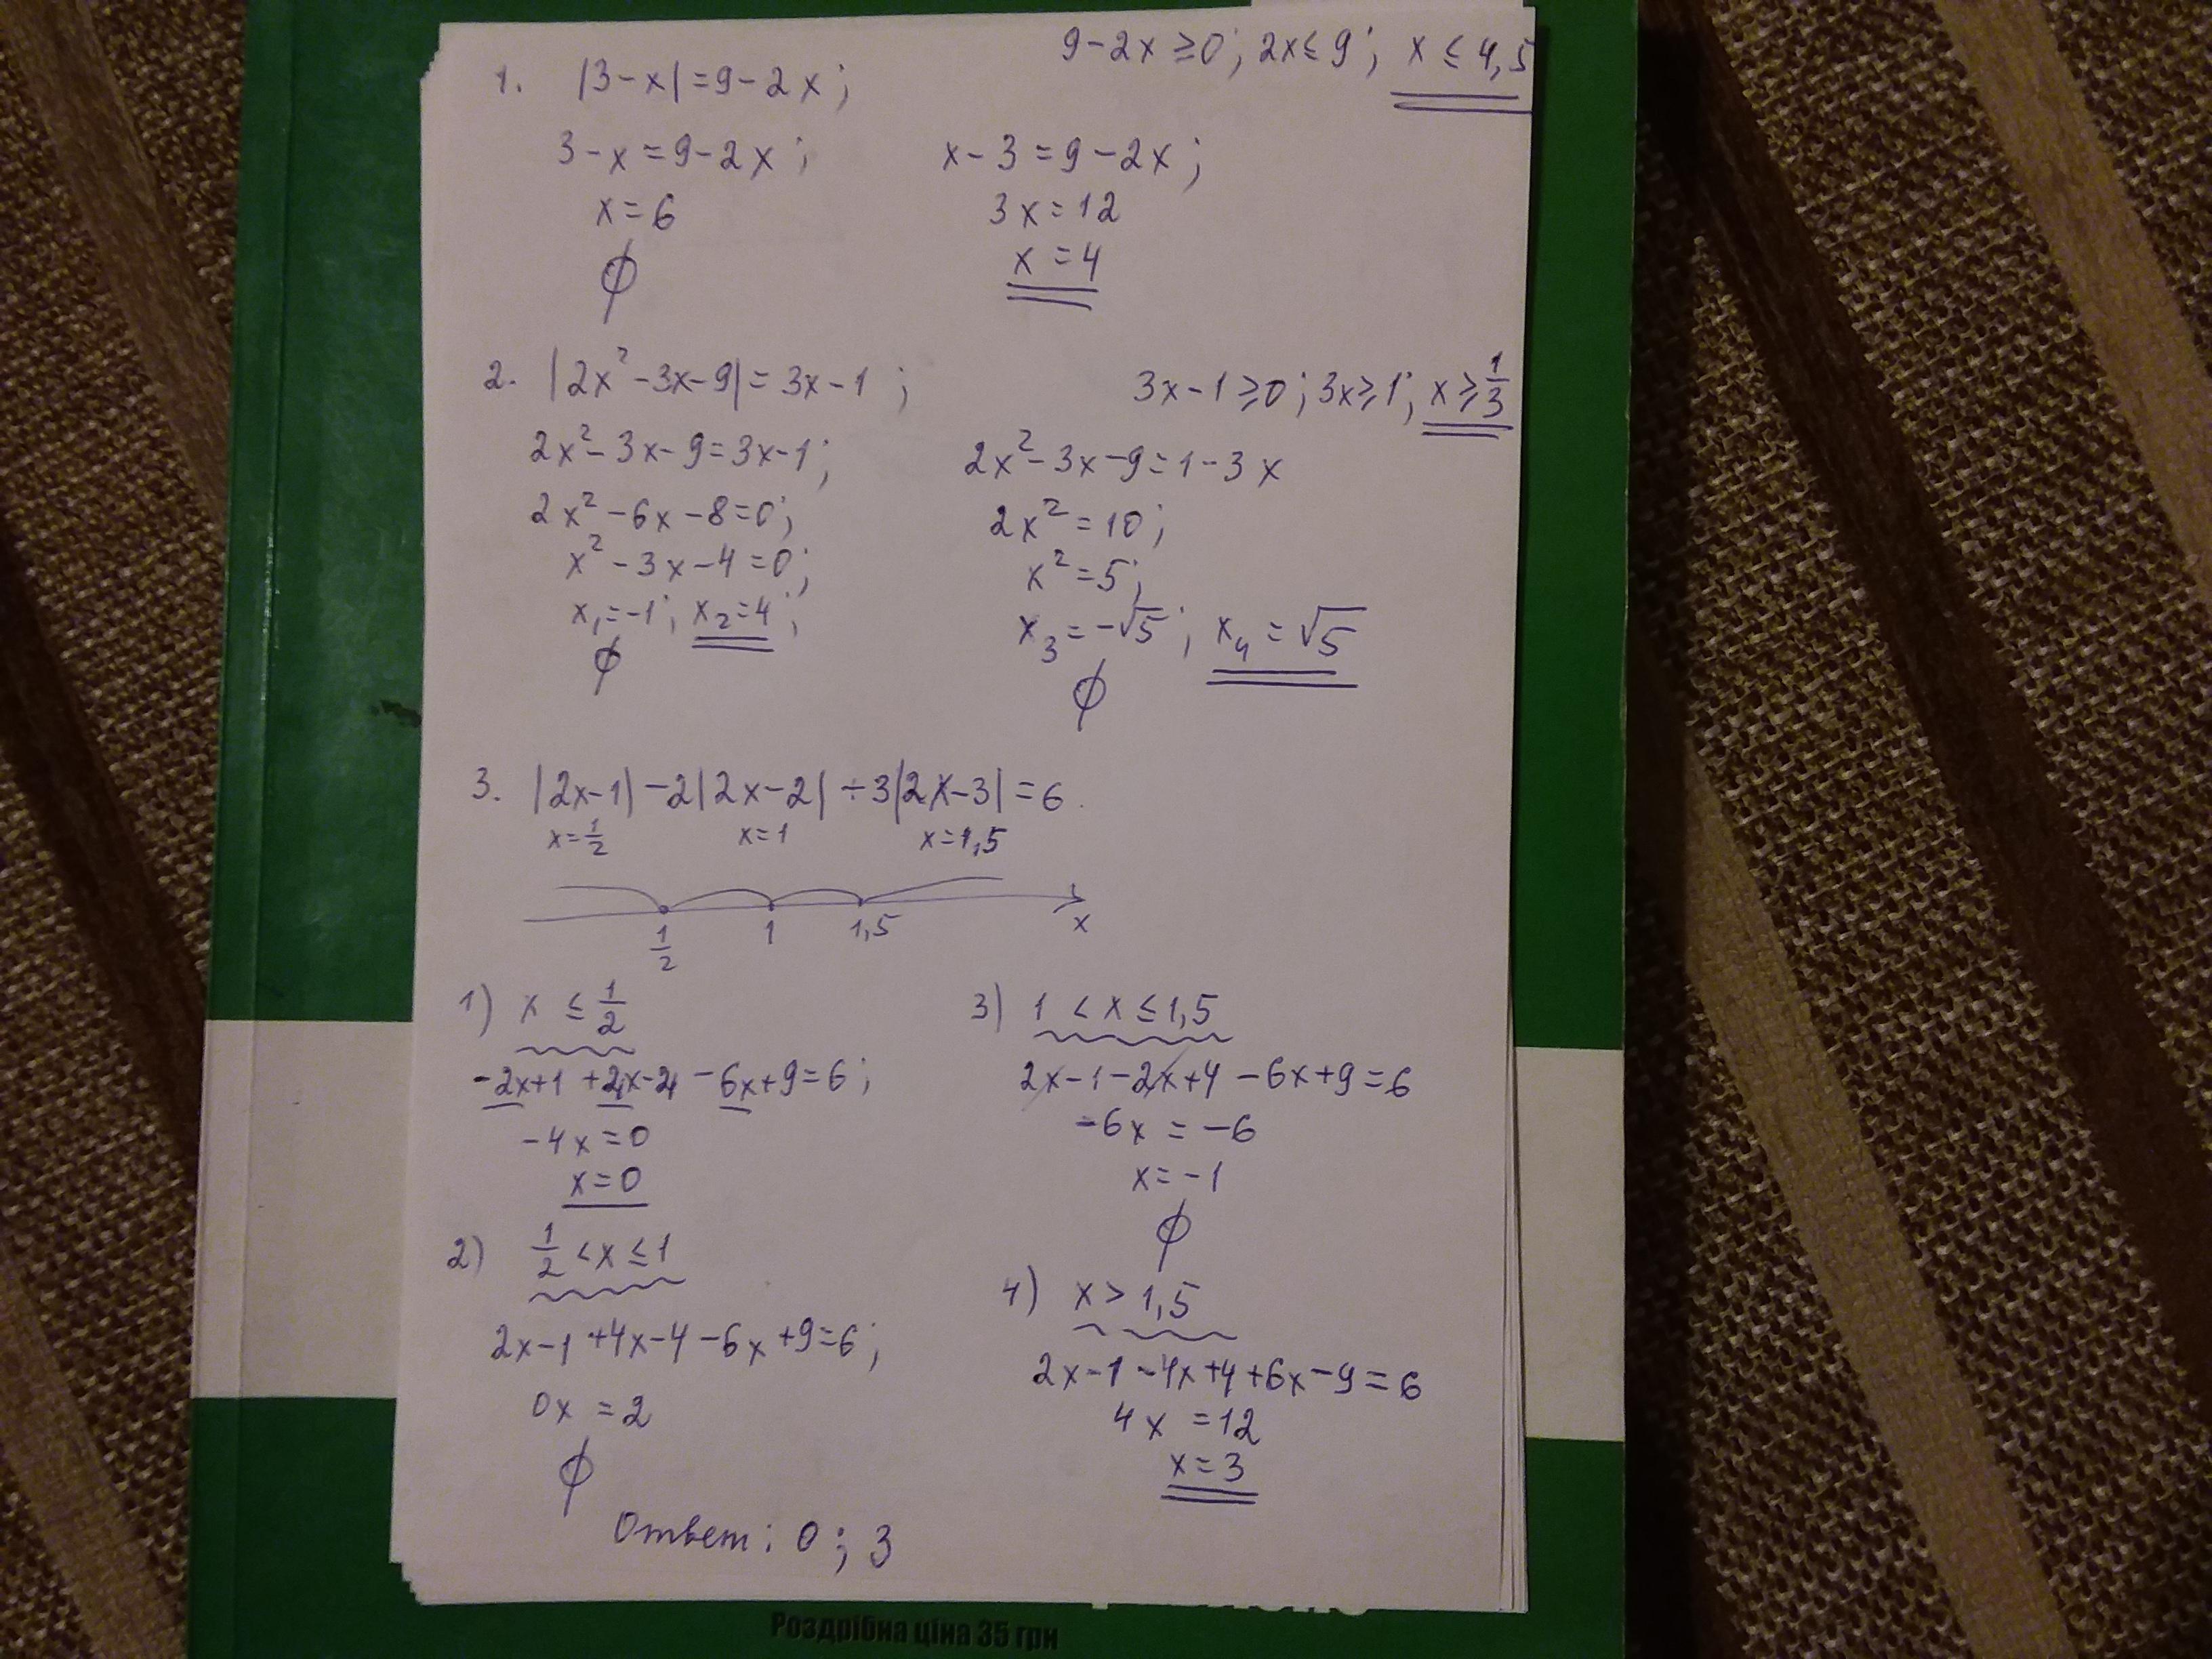 9-2x ≥ 0; 2x ≤ 9; x ≤ 4,5
1. |3-x| = 9-2x;
3-x = 9-2x; x-3 = 9-2x;
x = 6 3x = 12
∅ x = 4
2. |2x²-3x-9| = 3x-1; 3x-1 ≥ 0; 3x ≥ 1; x ≥ 1/3
2x²-3x-9 = 3x-1; 2x²-3x-9 = 1-3x
2x²-6x-8 = 0; 2x² = 10;
x²-3x-4 = 0; x² = 5;
x₁ = -1; x₂ = 4; x₃ = -√5; x₄ = √5
∅ ∅
3. |2x-1| - 2|2x-2| + 3|2x-3| = 6.
x = 1/2 x = 1 x = 1,5
1/2 1 1,5 x
1) x ≤ 1/2
-2x+1 +4x-4 -6x+9 = 6;
-4x = 0
x = 0
2) 1/2 < x ≤ 1
2x-1 +4x-4 -6x+9 = 6;
0x = 2
∅
3) 1 < x ≤ 1,5
2x-1-2x+4 -6x+9 = 6
-6x = -6
x = -1
∅
4) x > 1,5
2x-1-4x+4+6x-9 = 6
4x = 12
x = 3
Ответ: 0; 3
Роздрібна ціна 35 грн